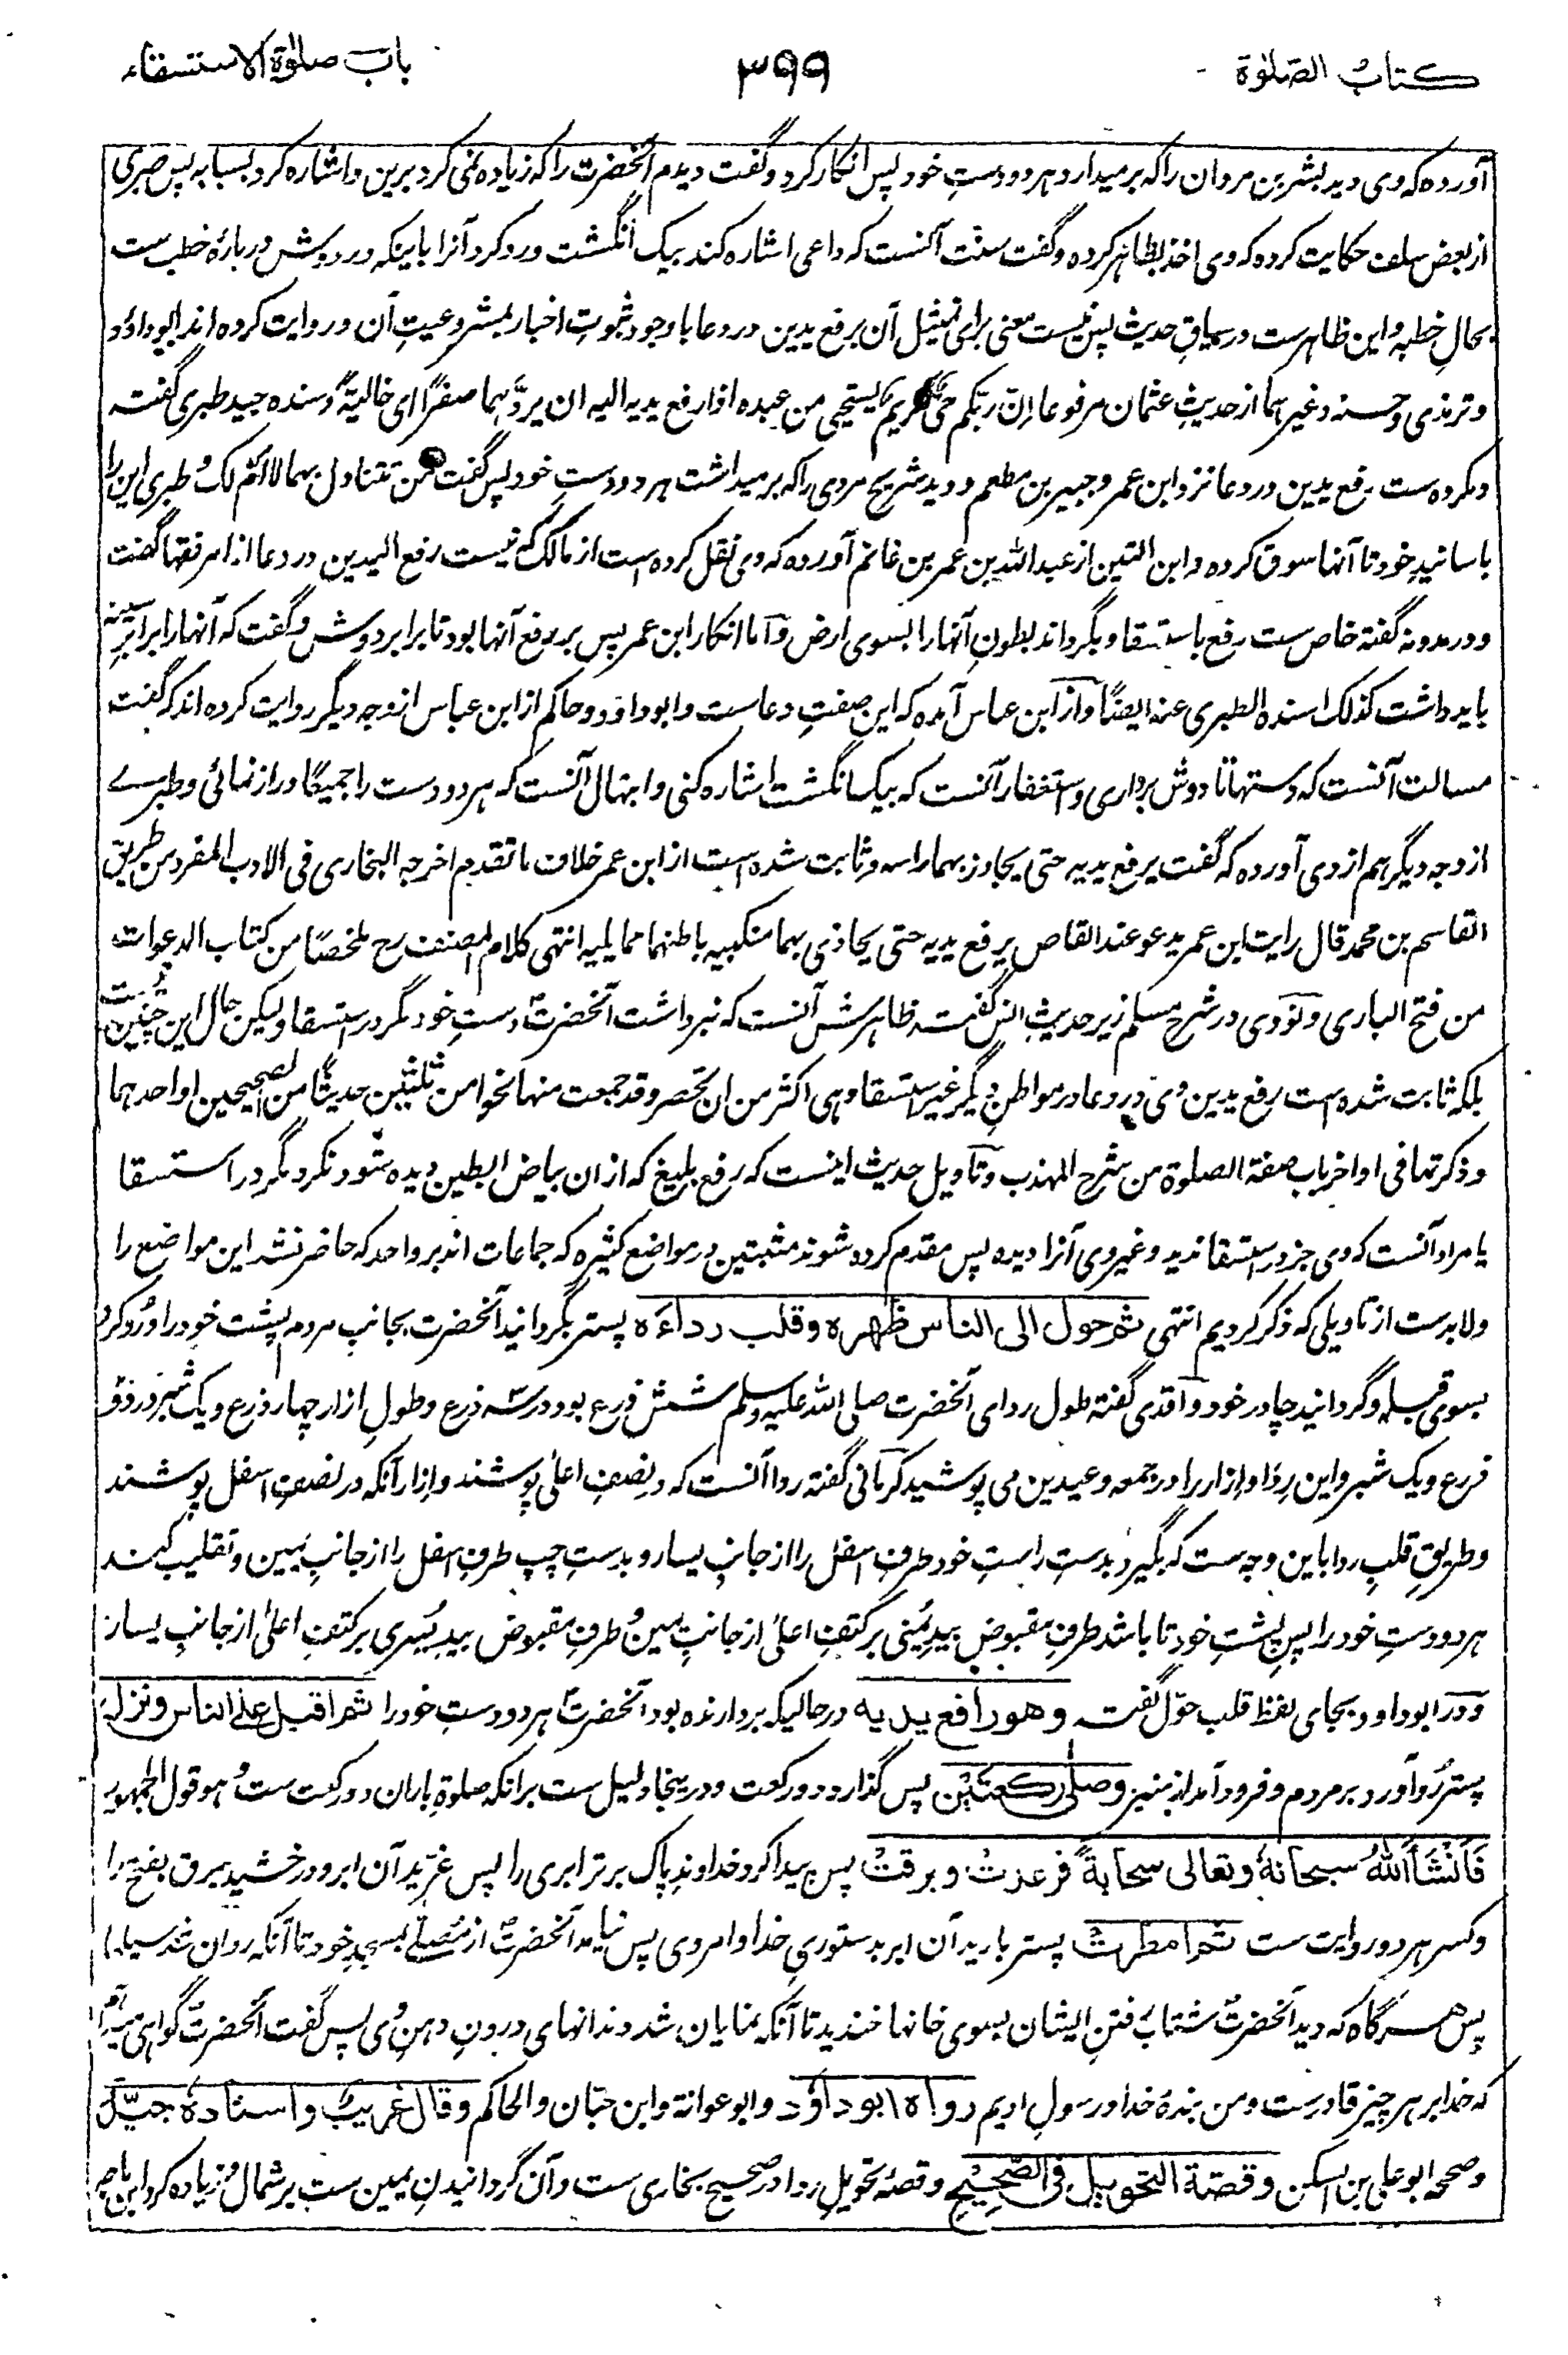 كتاب الصّلوٰة
۳۹۹
باب صلوٰة الاستسقاء
آورده که وی دید بشر بن مروان را که برمیدارد هر دو دستِ خود پس انکار کرد و گفت دیدم آنحضرت را که زیاده نمی کرد برین و اشاره کرد بسبابه پس طبری
از بعض سلف حکایت کرده که وی اخذ بظاهر کرده و گفت سنّت آنست که داعی اشاره کند بیک انگشت و رد کرد آنرا باینکه ورودش در بارهٔ خطیب ست
بحالِ خطبه و این ظاهرست در سیاقِ حدیث پس نیست معنی برای تمثیل آن برفع یدین در دعا با وجود ثبوتِ اخبار بمشروعیتِ آن و روایت کرده اند ابوداؤد
و ترمذی و حسنه و غیرهما از حدیثِ عثمان مرفوعا انّ ربّکم حیّ کریم یستحیی من عبده اذا رفع یدیه الیه ان یردّهما صفرًا ای خالیةً و سنده جید طبری گفته
و مکروه ست رفع یدین در دعا نزد ابن عمر و جبیر بن مطعم و دید شریح مردی را که برمیداشت هر دو دستِ خود پس گفت من تتناول بهما لا امّ لک و طبری این را
باسانیدِ خود تا آنها سوق کرده و ابن التین از عبد الله بن عمر بن غانم آورده که وی نقل کرده است از مالک که نیست رفع الیدین در دعا از امر فقها گفت
و در مدونه گفته خاص ست رفع باستسقا و بگرداند بطونِ آنها را بسوی ارض و اما انکار ابن عمر پس بر رفع آنها بود تا برابر دوش و گفت که آنها را برابرِ سینه
باید داشت کذلک اسنده الطبری عنه ایضًا و از ابن عباس آمده که این صفتِ دعاست و ابوداؤد و حاکم از ابن عباس از وجه دیگر روایت کرده اند که گفت
مسالت آنست که دستها تا دوش برداری و استغفار آنست که بیک انگشت اشاره کنی و ابتهال آنست که هر دو دست را جمیعًا دراز نمائی و طبرے
از وجه دیگر هم از وی آورده که گفت یرفع یدیه حتی یجاوز بهما راسه و ثابت شده است از ابن عمر خلاف ما تقدم اخرجه البخاری فی الادب المفرد من طریق
القاسم بن محمد قال رایت ابن عمر یدعو عند القاص یرفع یدیه حتی یحاذی بهما منکبیه باطنهما مما یلیه انتهی کلام المصنف رح ملخصًا من کتاب الدعوات
من فتح الباری و نووی در شرح مسلم زیر حدیث انس گفته ظاهرش آنست که نبرداشت آنحضرت دستِ خود مگر در استسقا و لیکن حال این چنین نیست
بلکه ثابت شده است رفع یدین وی در دعا در مواطنِ دیگر غیر استسقا وهی اکثر من ان تحصر وقد جمعت منها نحوا من ثلثین حدیثًا من الصحیحین او احدهما
و ذکرتها فی اواخر باب صفة الصلوة من شرح المهذب و تاویل حدیث اینست که رفع بلیغ که از ان بیاض ابطین دیده شود نکرد مگر در استسقا
یا مراد آنست که وی جز در استسقا ندید و غیر وی آنرا دیده پس مقدم کرده شوند مثبتین در مواضع کثیره که جماعات اند بر واحد که حاضر نشد این مواضع را
و لا بد ست از تاویلی که ذکر کردیم انتهی ثم حول الى الناس ظهره وقلب رداءه پستر بگردانید آنحضرت بجانبِ مردم پشت خود را و رُو کرد
بسوی قبله و گردانید چادر خود واقدی گفته طول ردای آنحضرت صلی الله علیه وسلم شش ذرع بود در سه ذرع و طولِ ازار چهار ذرع و یک شبر در دو
ذرع و یک شبر و این رِدا و ازار را در جمعه و عیدین می پوشید کرمانی گفته ردا آنست که در نصفِ اعلیٰ پوشند و ازار آنکه در نصفِ اسفل پوشند
و طریقِ قلبِ ردا باین وجه ست که بگیرد بدستِ راستِ خود طرفِ اسفل را از جانبِ یسار و بدستِ چپ طرفِ اسفل را از جانبِ یمین و تقلیب کند
هر دو دستِ خود را پسِ پشتِ خود تا باشد طرفِ مقبوض بیدِ یُمنی بر کتفِ اعلیٰ از جانبِ یمین و طرفِ مقبوض بیدِ یُسری بر کتفِ اعلیٰ از جانبِ یسار
و در ابوداود بجای لفظ قلب حوّل گفت وهو رافع يديه در حالیکه بردارنده بود آنحضرت هر دو دستِ خود را ثم اقبل على الناس ونزل
پستر رُو آورد بر مردم و فرود آمد از منبر وصلى ركعتين پس گذارد دو رکعت و درینجا دلیل ست برانکه صلوٰةِ باران دو رکعت ست و هو قول الجمهور
فَاَنْشَأَ اللّٰهُ سبحانهٗ وتعالى سحابةً فرعدتْ وبرقتْ پس پیدا کرد خداوندِ پاک برتر ابری را پس غرّید آن ابر و درخشید برق بفتحِ را
و کسر هر دو روایت ست ثم امطرتْ پستر بارید آن ابر بدستوری خدا و امر وی پس نیامد آنحضرت از مُصلّے بمسجدِ خود تا آنکه روان شد سیلها
پس هرگاه که دید آنحضرت شتاب رفتنِ ایشان بسوی خانها خندید تا آنکه نمایان شد دندانهای درونِ دهنِ وی پس گفت آنحضرت گواهی میدهم
که خدا بر هر چیز قادرست و من بندهٔ خدا و رسولِ اویم رواه ابو داؤد و ابو عوانة وابن حبّان والحاكم وقال غريبٌ واسناده جيّدٌ
و صححه ابو علی بن السکن وقصّة التحويل فى الصّحيحِ و قصّهٔ تحویلِ ردا در صحیح بخاری ست و آن گردانیدنِ یمین ست بر شمال و زیاده کرد ابن ماجه